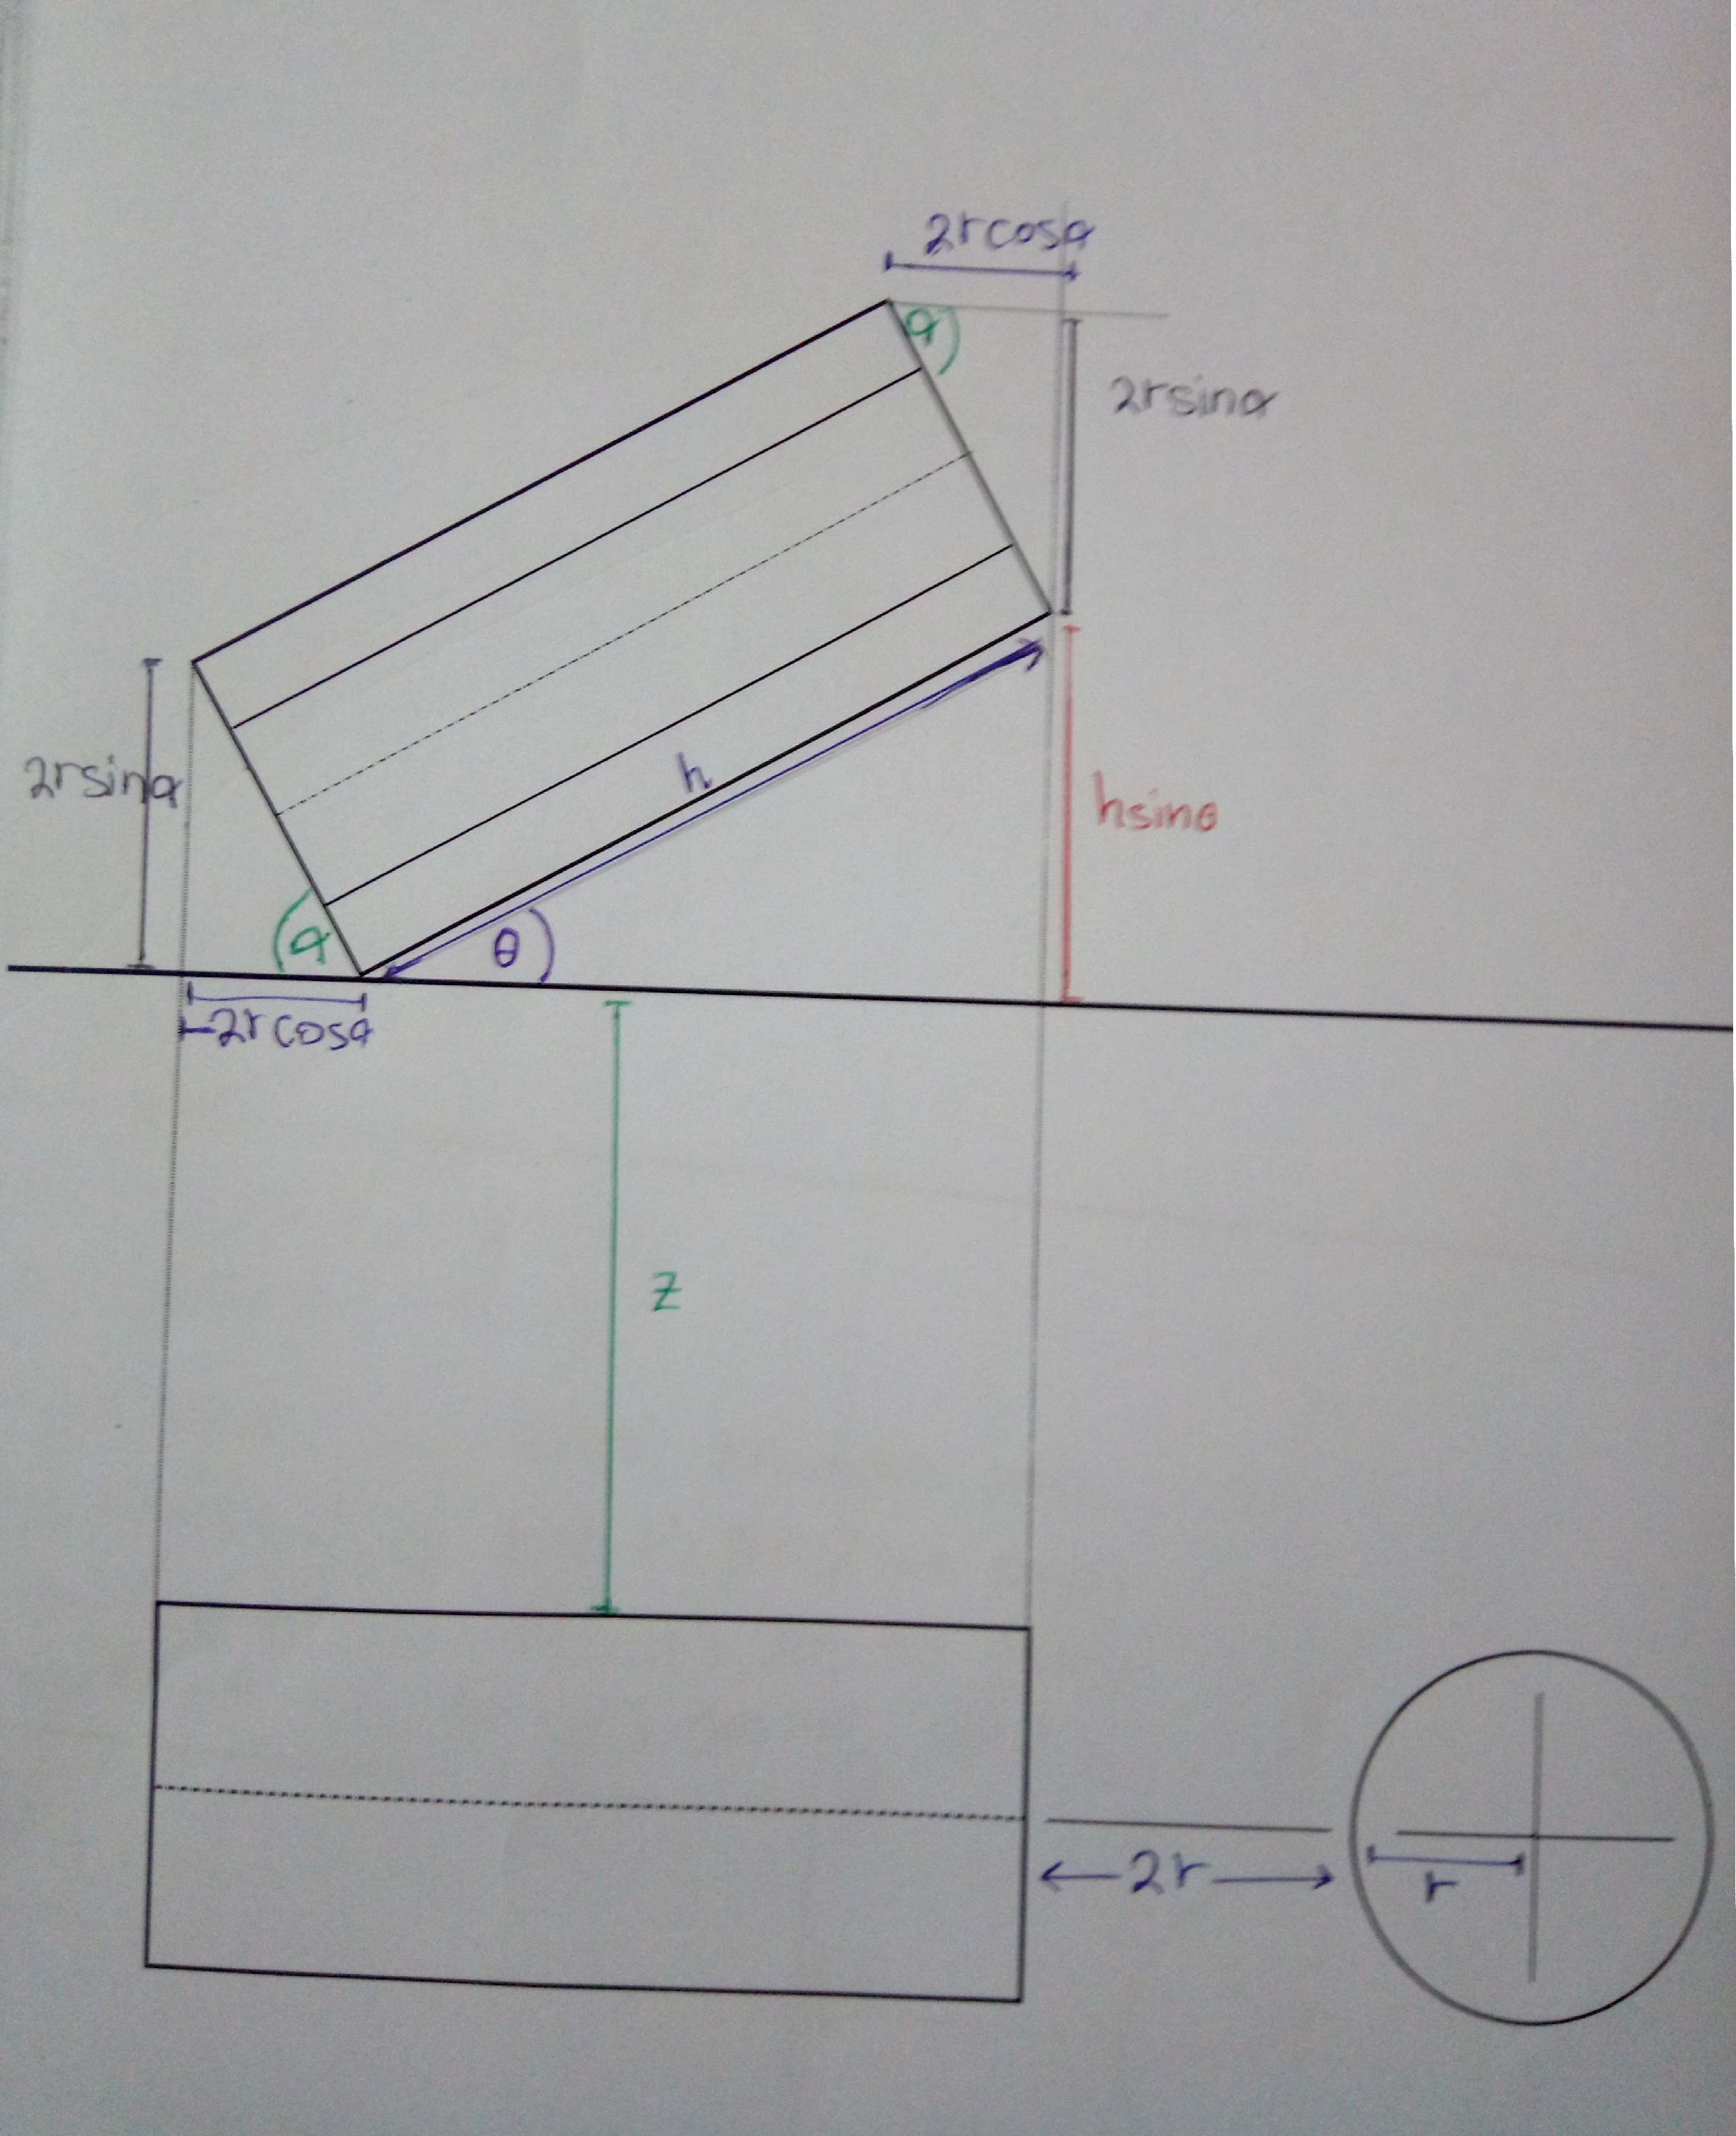 2rcosα
α
2rsinα
2rsinα
h
hsinθ
α
θ
-2rcosα
z
2r
r